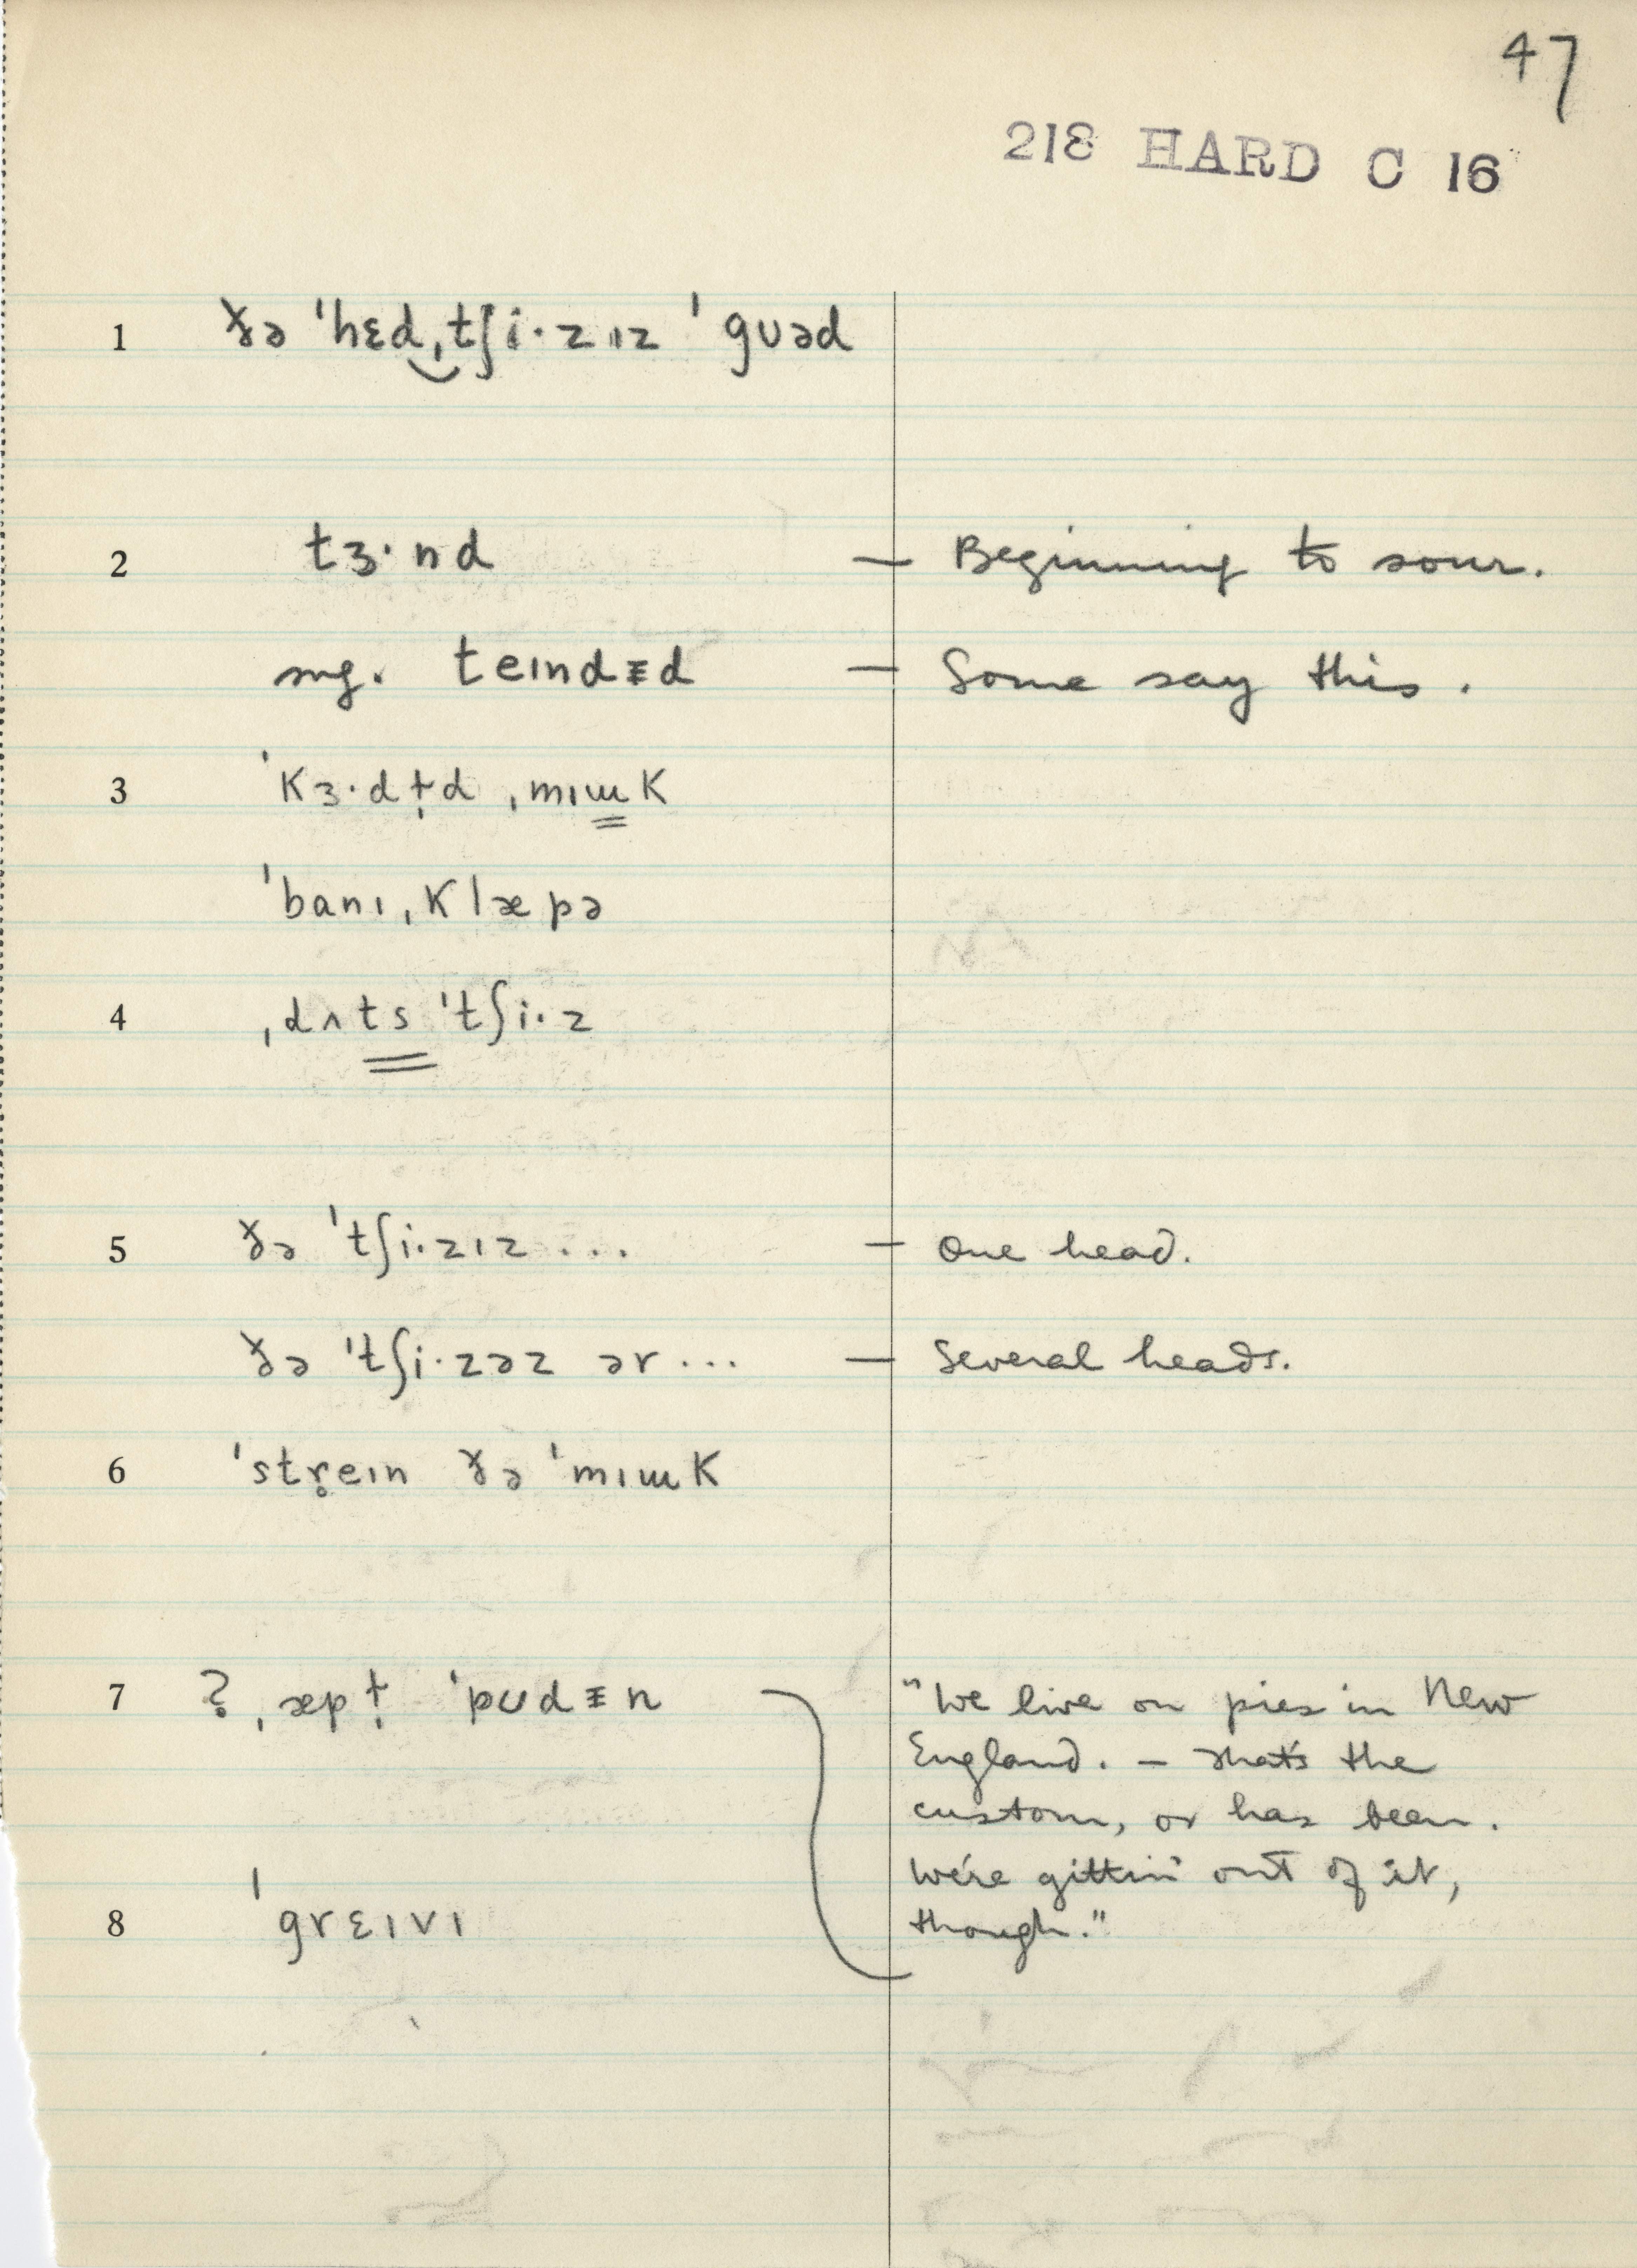 47
218 HARD C 16
1 ɣ̵ə ˈhɛd‿ˌtʃi·zɪz ˈgʊəd
2 tɜ·nd — Beginning to sour.
sug. teɪndᵻd — Some say this.
3 ˈkɜ·dɨ̞d ˌmɪɯk
ˈbanɪˌklæpə
4 ˌdʌts ˈtʃi·z
5 ðə ˈtʃi·zɪz ... — One head.
ðə ˈtʃi·zəz ər ... — Several heads.
6 ˈstr̥eɪn ðə ˈmɪɯk
7 ? ˌæpɨ̞ ˈpʊdᵻn "We live on pies in New
England. — That's the
custom, or has been.
We're gittin' out of it,
8 ˈgrɛɪvɪ though."